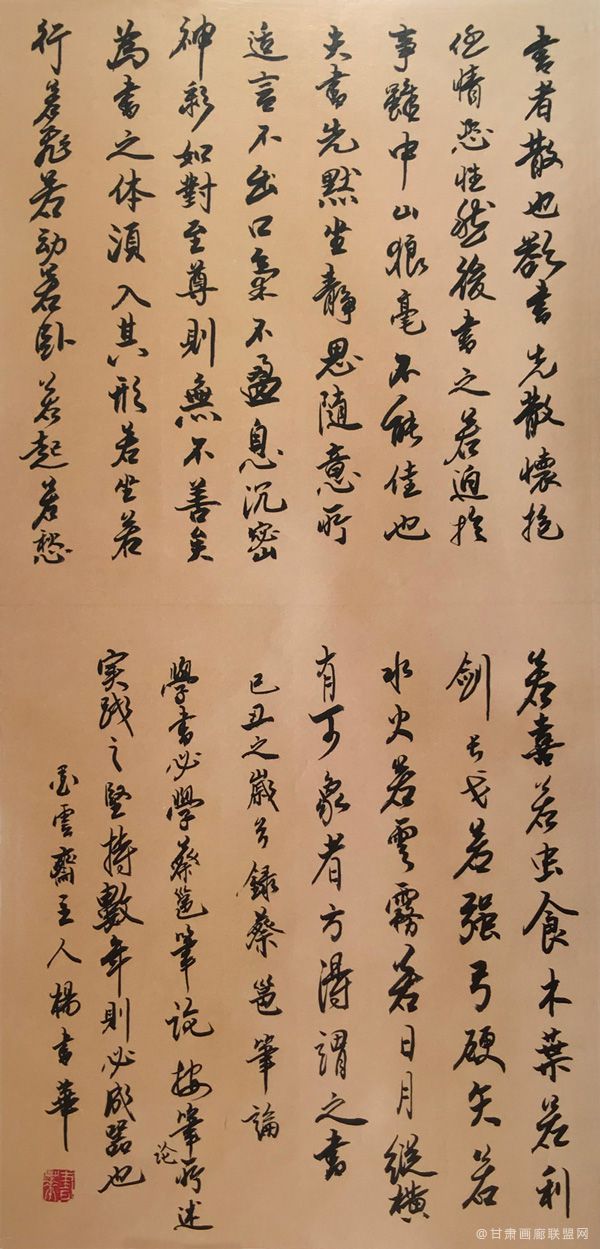 书者散也欲书先散懷抱
任情恣性然後書之若迫於
事雖中山狼毫不能佳也
夫書先默坐静思隨意所
适言不出口氣不盈息沉密
神彩如對至尊則無不善矣
為書之体須入其形若坐若
行若飛若动若卧若起若愁
若喜若虫食木葉若利
劍長戈若强弓硬矢若
水火若雲霧若日月縱横
有可象者方得謂之書
己丑之歲兮錄蔡邕筆論
學書必學蔡邕筆论按筆论所述
实践之坚持數年則必成器也
墨雲齋主人楊書華
@甘肃画廊联盟网